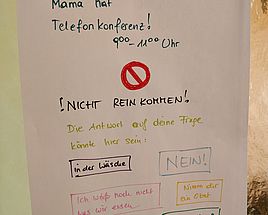 Mama hat
Telefonkonferenz!
9⁰⁰-11⁰⁰ Uhr
!NICHT REIN KOMMEN!
Die Antwort auf deine Frage
könnte hier sein:
in der Wäsche
NEIN!
Ich weiß noch nicht
was wir essen
Nimm dir
ein Obst